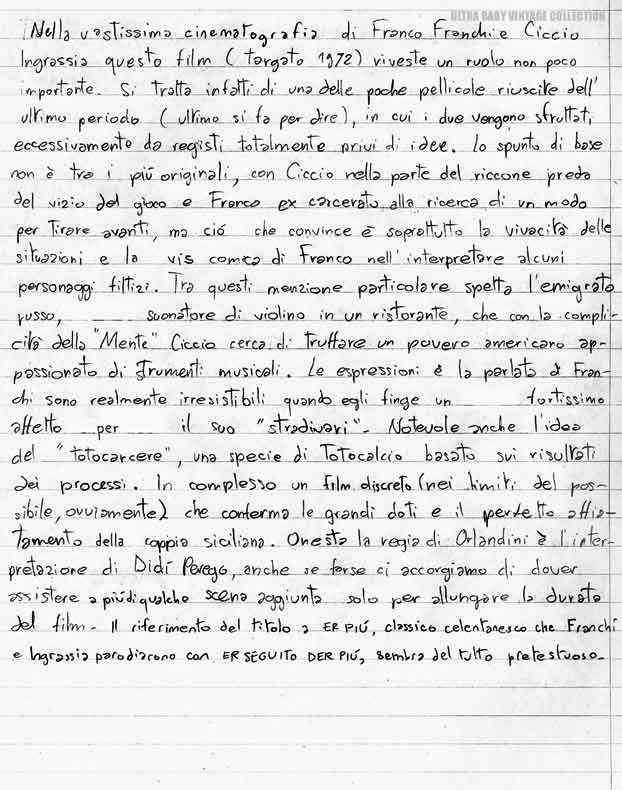 ULTRA BABY VINTAGE COLLECTION
Nella vastissima cinematografia di Franco Franchi e Ciccio
Ingrassia questo film (targato 1972) riveste un ruolo non poco
importante. Si tratta infatti di una delle poche pellicole riuscite dell'
ultimo periodo (ultimo si fa per dire), in cui i due vengono sfruttati
eccessivamente da registi totalmente privi di idee. Lo spunto di base
non è tra i più originali, con Ciccio nella parte del riccone preda
del vizio del gioco e Franco ex carcerato alla ricerca di un modo
per tirare avanti, ma ciò che convince è soprattutto la vivacità delle
situazioni e la vis comica di Franco nell'interpretare alcuni
personaggi fittizi. Tra questi menzione particolare spetta l'emigrato
russo, suonatore di violino in un ristorante, che con la compli-
cità della "Mente" Ciccio cerca di truffare un povero americano ap-
passionato di strumenti musicali. Le espressioni e la parlata di Fran-
chi sono realmente irresistibili quando egli finge un fortissimo
affetto per il suo "stradivari". Notevole anche l'idea
del "totocarcere", una specie di Totocalcio basato sui risultati
dei processi. In complesso un film discreto (nei limiti del pos-
sibile, ovviamente) che conferma le grandi doti e il perfetto affia-
tamento della coppia siciliana. Onesta la regia di Orlandini e l'inter-
pretazione di Didi Perego, anche se forse ci accorgiamo di dover
assistere a più di qualche scena aggiunta solo per allungare la durata
del film. Il riferimento del titolo a ER PIÙ, classico celentanesco che Franchi
e Ingrassia parodiarono con ER SEGUITO DER PIÚ, sembra del tutto pretestuoso.